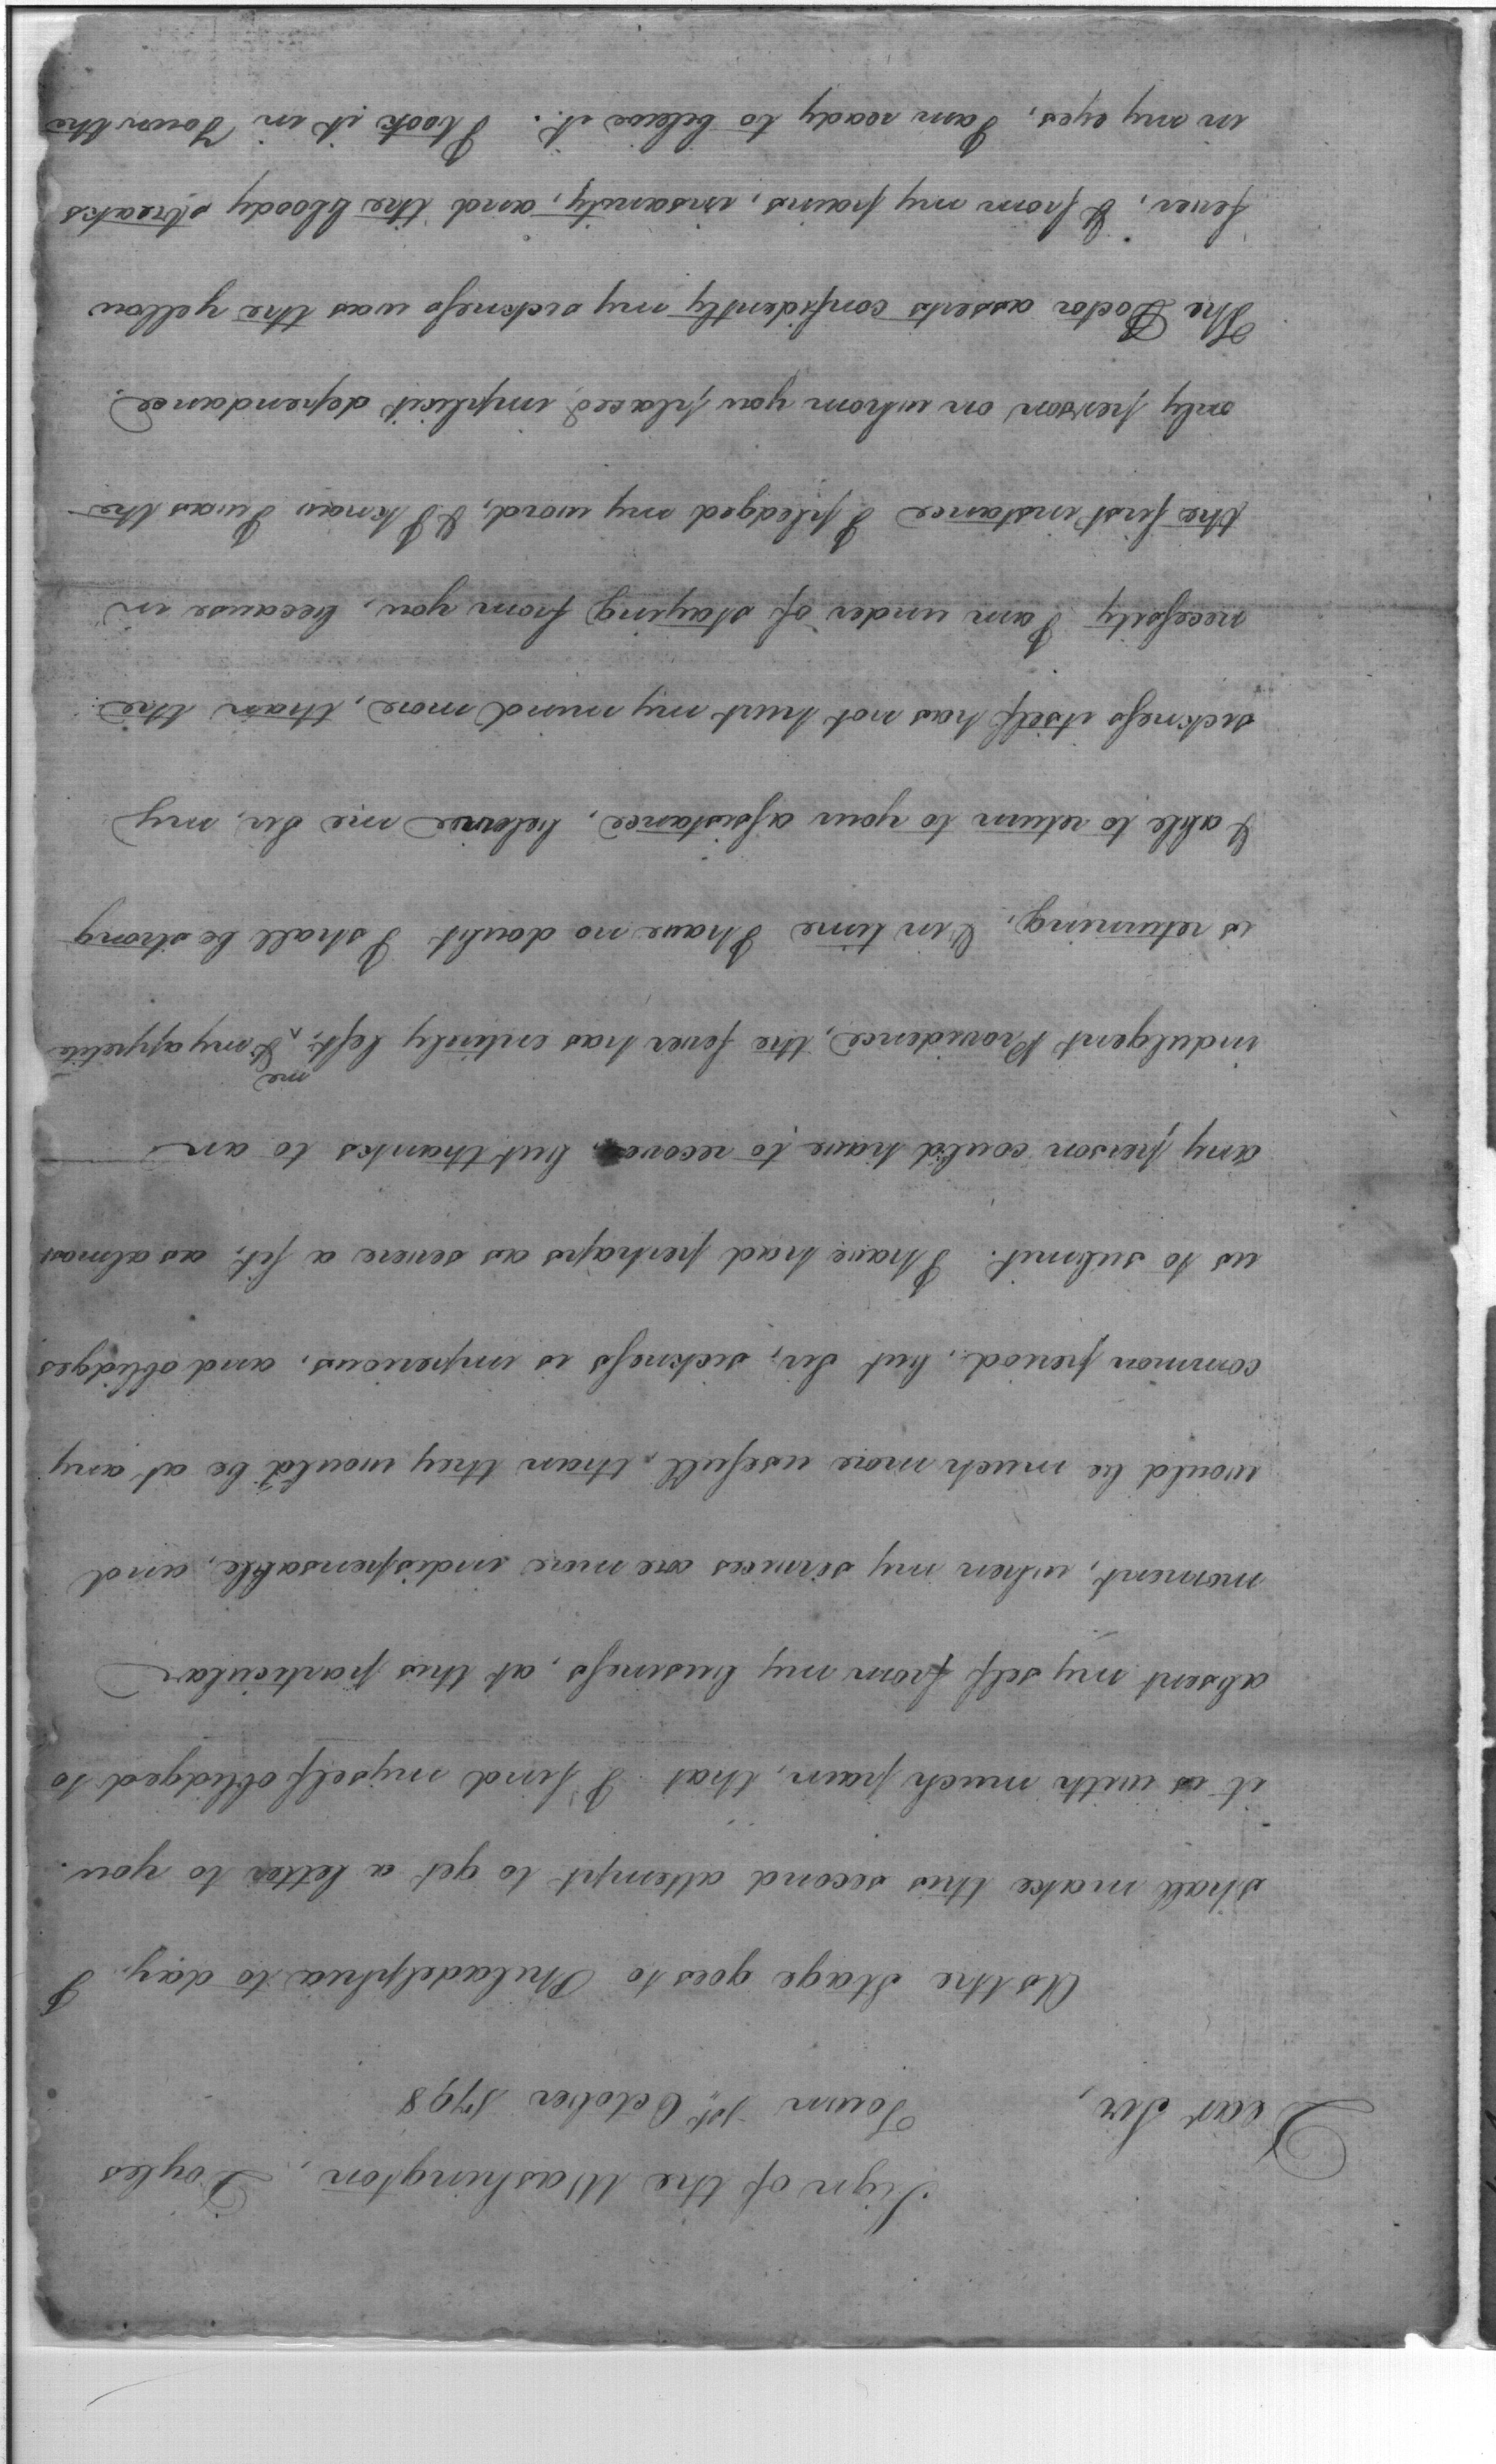 Sign of the Washington, Doyles
Dear Sir, Town 1st. October 1798
As the Stage goes to Philadelphia to day, I
shall make this second attempt to get a letter to you.
it is with much pain, that I find myself oblidged to
absent my self from my business, at this particular
moment, when my services are more indispensable, and
would be much more usefull, than they would be at any
common period, but Sir, sickness is imperious, and oblidges
us to submit. I have had perhaps as severe a fit, as almost
any person could have to recover, but thanks to an
indulgent Providence, the fever has entirely left, ^me & my appetite
is returning, & in time I have no doubt I shall be strong
& able to return to your assistance, beleive me Sir, my
sickness itself has not hurt my mind more, than the
necessity I am under of staying from you, because in
the first instance I pledged my word, & I know I was the
only person on whom you placed implicit dependance.
The Doctor asserts confidently my sickness was the yellow
fever, & from my pains, insanity, and the bloody streaks
in my eyes, I am ready to beleive it. I took it in Town the